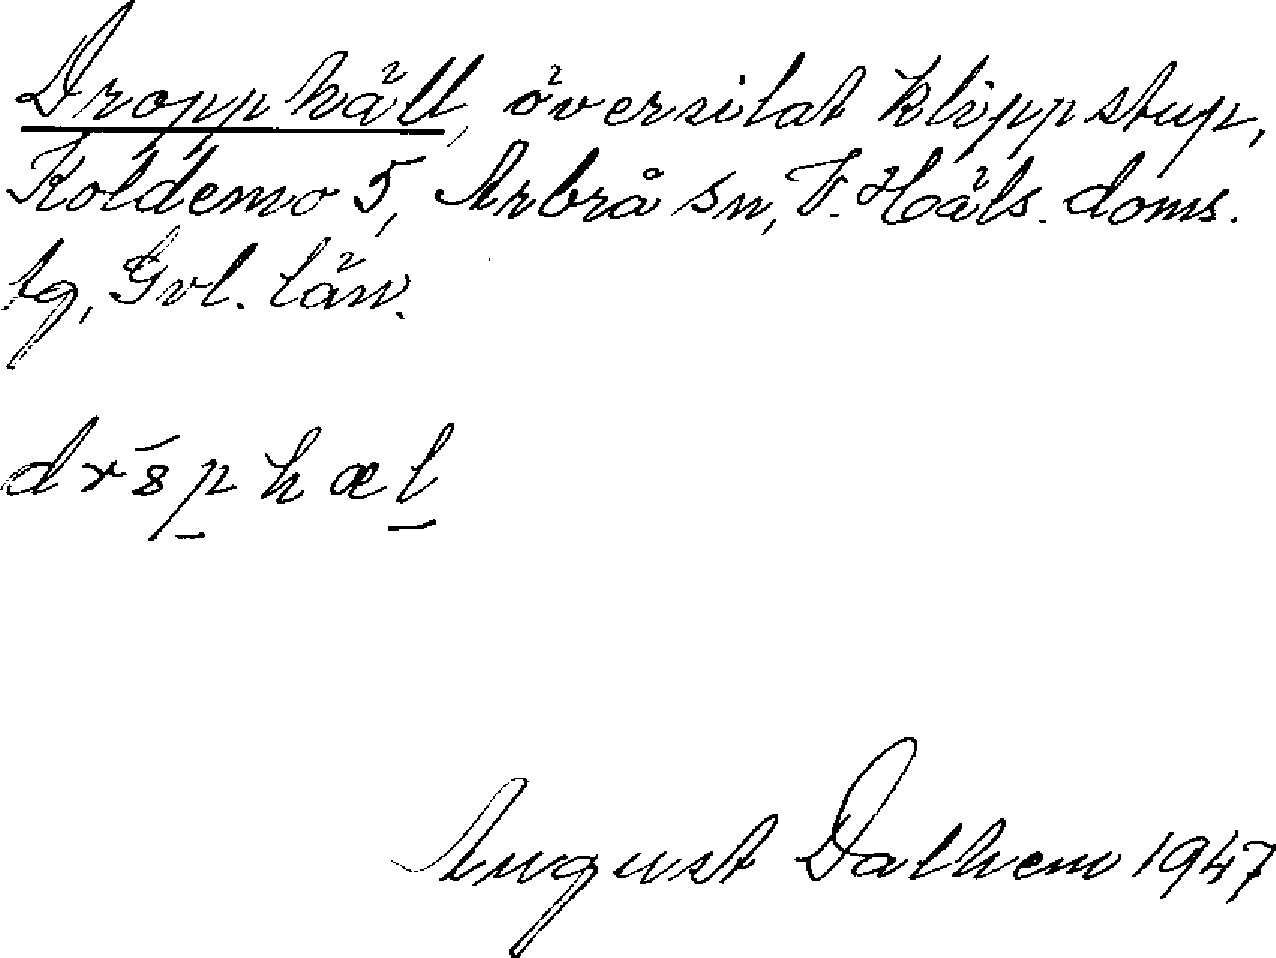 Dropphäll, översilat klippstup,
Koldemo 5, Arbrå sn, V. Häls. doms.
lg, Gvl. län.
dräphæl
August Dalhem 1947